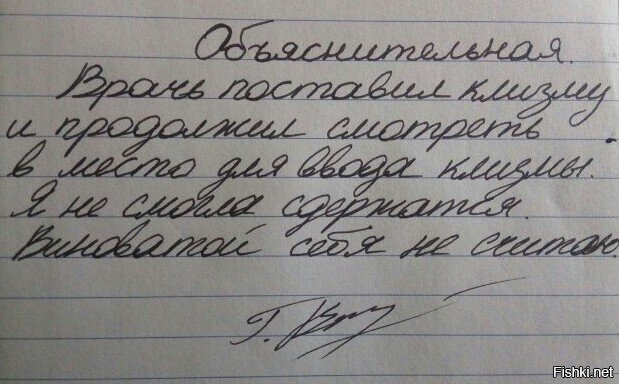 Объяснительная.
Врачь поставил клизму
и продолжил смотреть
в место для ввода клизмы.
Я не смогла сдержатся.
Виноватой себя не считаю.
Fishki.net